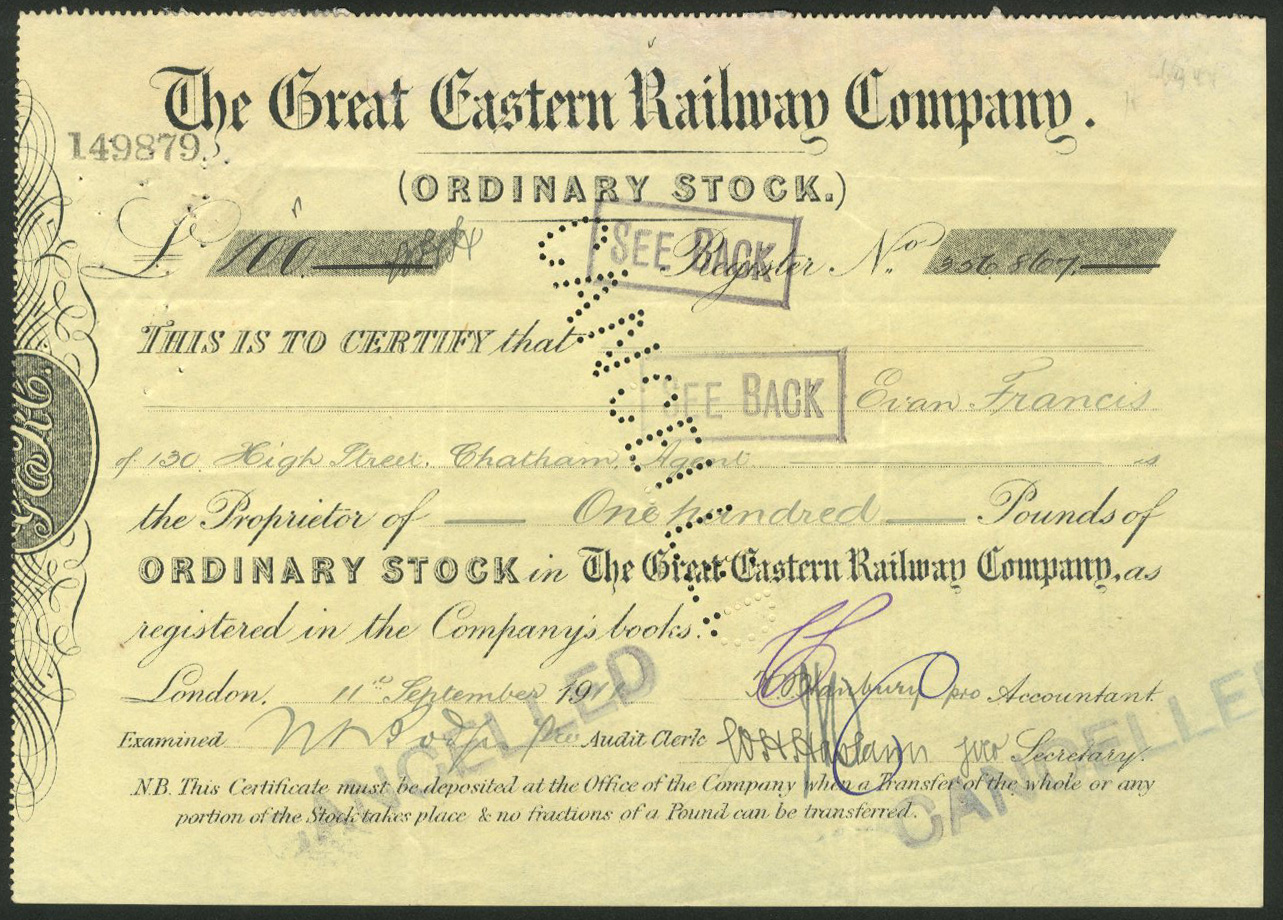 The Great Eastern Railway Company.
149879
(ORDINARY STOCK.)
£ 100 Register No. 336.867.
SEE BACK
THIS IS TO CERTIFY that
SEE BACK
Evan Francis
of 130 High Street, Chatham, Agent is
the Proprietor of One hundred Pounds of
ORDINARY STOCK in The Great Eastern Railway Company, as
registered in the Company's books.
CANCELLED
London, 11th September 191
Hanbury pro Accountant
Examined Audit Clerk pro Secretary.
CANCELLED
CANCELLED
N.B. This Certificate must be deposited at the Office of the Company when a Transfer of the whole or any
portion of the Stock takes place & no fractions of a Pound can be transferred.